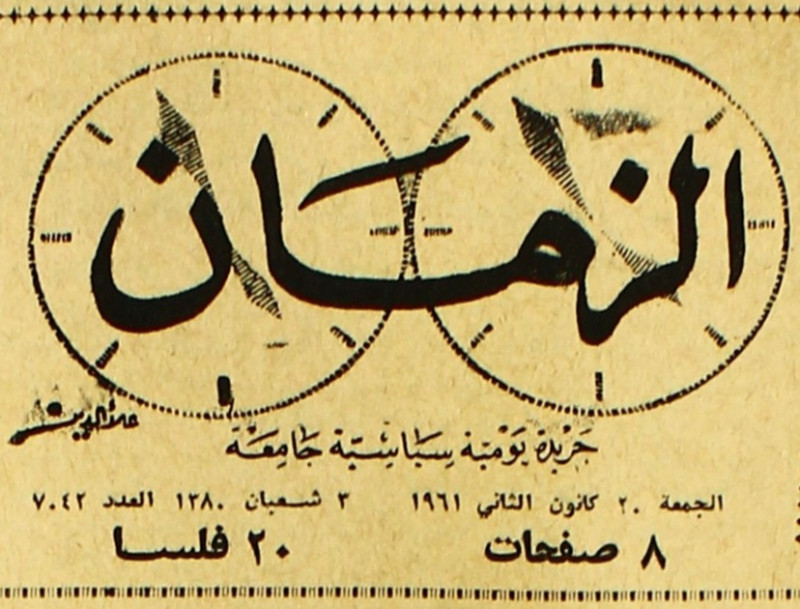 الزمان
علاء الدين
جريدة يومية سياسية جامعة
الجمعة ٢٠ كانون الثاني ١٩٦١ ٣ شعبان ١٣٨٠ العدد ٧٠٤٢
٨ صفحات ٢٠ فلسا